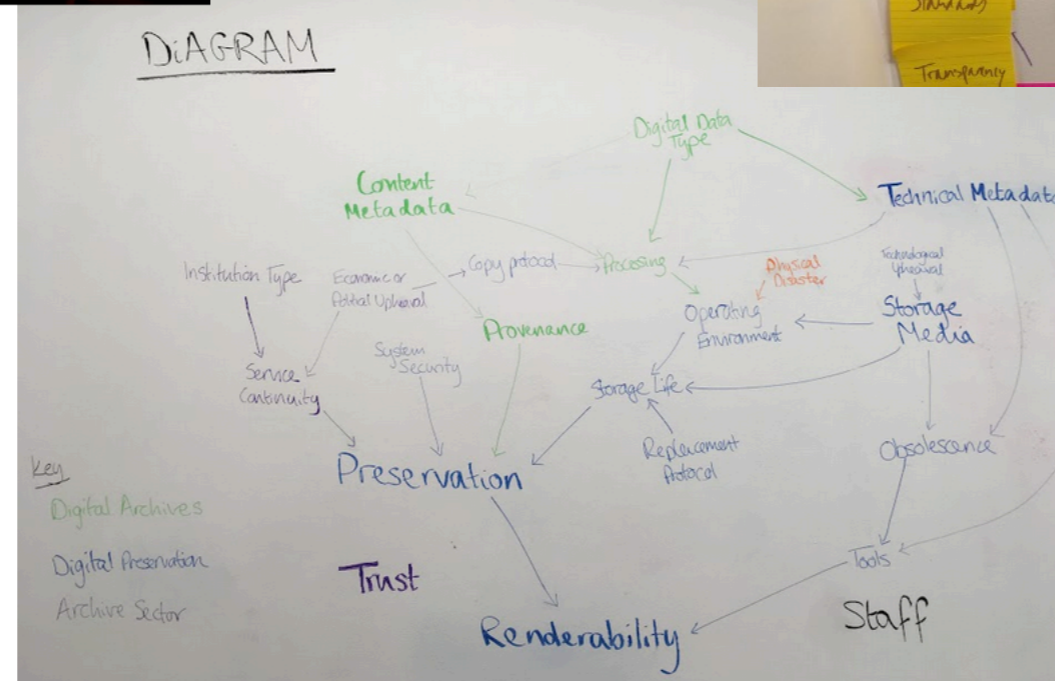 Standards
Transparency
DiAGRAM
Digital Data
Type
Content
Metadata
Technical Metadata
Institution Type
Economic or
Political Upheaval
Copy protocol
Processing
Physical
Disaster
Technological
Upheaval
Operating
Environment
Storage
Media
Provenance
System
Security
Service
Continuity
Storage Life
Replacement
Protocol
Obsolescence
Preservation
Key
Digital Archives
Digital Preservation
Archive Sector
Trust
Tools
Staff
Renderability